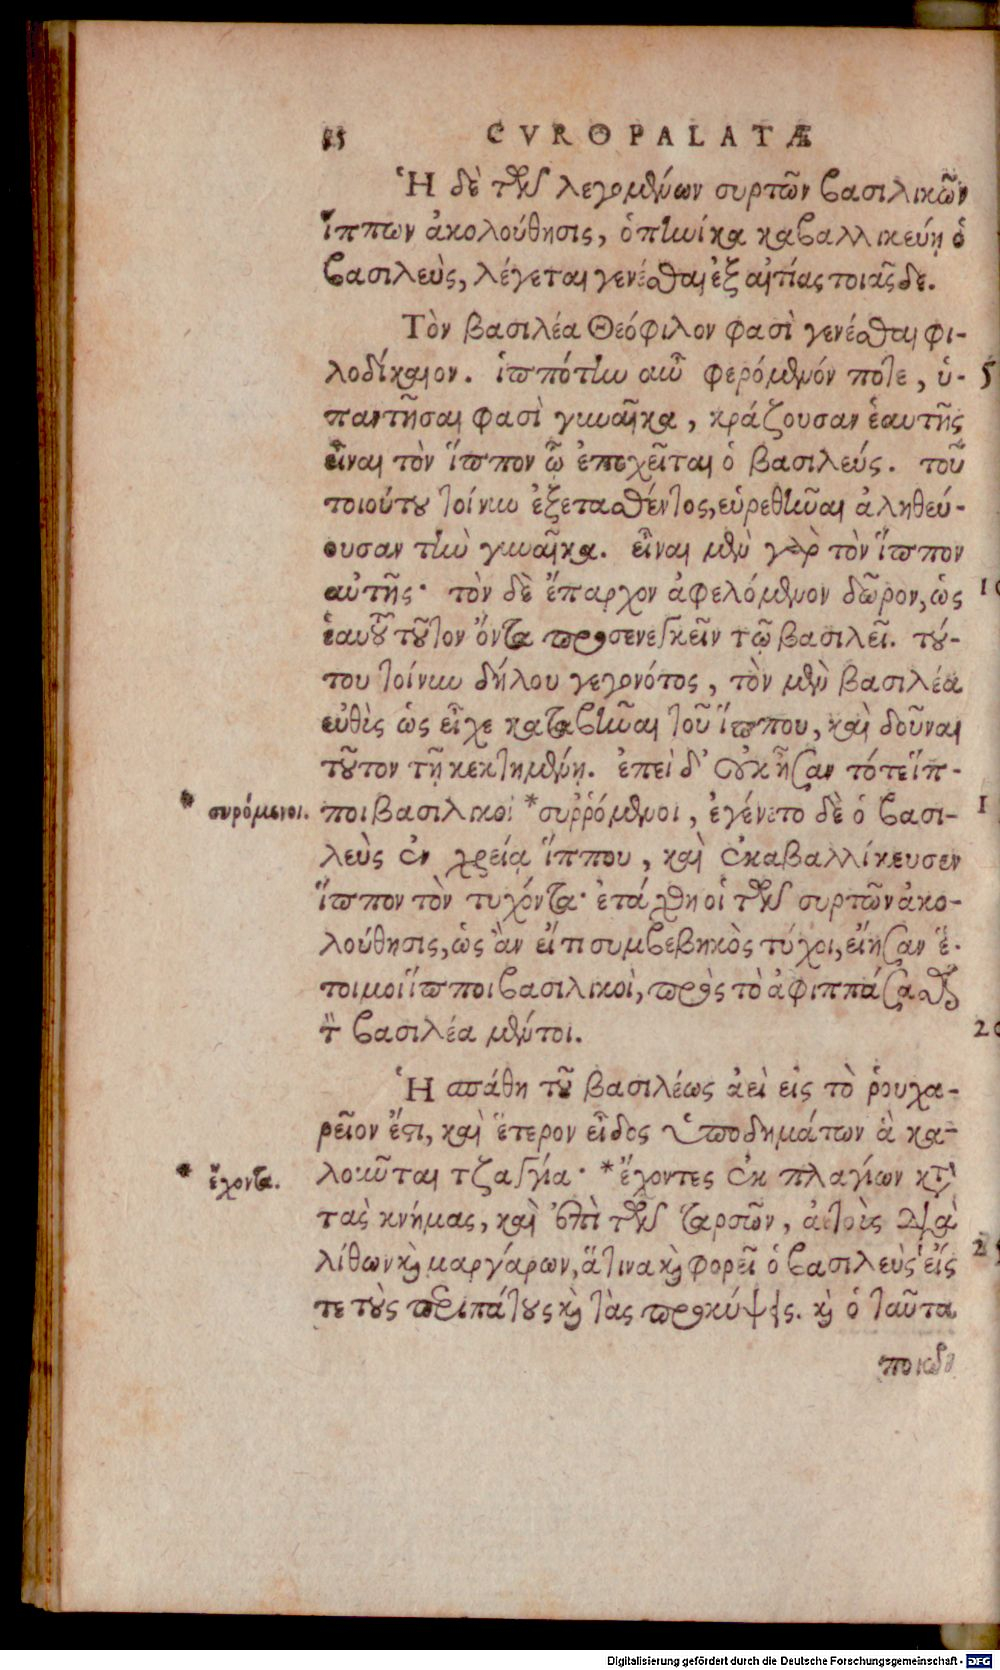 CVROPALATÆ
Ἡ δὲ τῶν λεγομένων συρτῶν βασιλικῶν
ἵππων ἀκολούθησις, ὁπηνίκα καβαλλικεύῃ ὁ
βασιλεὺς, λέγεται γενέσθαι ἐξ αἰτίας τοιᾶς δε.
Τὸν βασιλέα Θεόφιλον φασὶ γενέσθαι φι-
λοδίκαιον. ἱππότην οὖν φερόμενόν ποτε, ὑ- 5
παντῆσαι φασὶ γυναῖκα, κράζουσαν ἑαυτῆς
εἶναι τὸν ἵππον ᾧ ἐποχεῖται ὁ βασιλεύς. τοῦ
τοιούτου τοίνυν ἐξετασθέντος, εὑρεθῆναι ἀληθεύ-
ουσαν τὴν γυναῖκα. εἶναι μὲν γὰρ τὸν ἵππον
αὐτῆς· τὸν δὲ ἔπαρχον ἀφελόμενον δῶρον, ὡς 10
ἑαυτοῦ τοῦτον ὄντα προσενεγκεῖν τῷ βασιλεῖ. τού-
του τοίνυν δήλου γεγονότος, τὸν μὲν βασιλέα
εὐθὺς ὡς εἶχε καταβῆναι τοῦ ἵππου, καὶ δοῦναι
τοῦτον τῇ κεκτημένῃ. ἐπεὶ δ' οὐκ ἦσαν τότε ἵπ-
* συρόμενοι. ποι βασιλικοὶ *συῤῥόμενοι, ἐγένετο δὲ ὁ βασι- 1
λεὺς ἐν χρείᾳ ἵππου, καὶ ἐκαβαλλίκευσεν
ἵππον τὸν τυχόντα· ἐτάχθη οἱ τῶν συρτῶν ἀκο-
λούθησις, ὡς ἂν εἴ τι συμβεβηκὸς τύχοι, εἴησαν ἕ-
τοιμοι ἵπποι βασιλικοὶ, πρὸς τὸ ἀφιππάσασθαι
τὸν βασιλέα μέντοι. 20
Ἡ σπάθη τοῦ βασιλέως ἀεὶ εἰς τὸ ῥουχα-
ρεῖον ἐστι, καὶ ἕτερον εἶδος ὑποδημάτων ἃ κα-
* ἔχοντα. λοῦνται τζαγγία· *ἔχοντες ἐκ πλαγίων κατὰ
τὰς κνήμας, καὶ ἐπὶ τῶν ταρσῶν, ἀετοὺς διὰ
λίθων καὶ μαργάρων, ἅτινα καὶ φορεῖ ὁ βασιλεὺς εἴς 25
τε τοὺς περιπάτους καὶ τὰς προκύψεις. καὶ ὁ ταῦτα
Digitalisierung gefördert durch die Deutsche Forschungsgemeinschaft - DFG